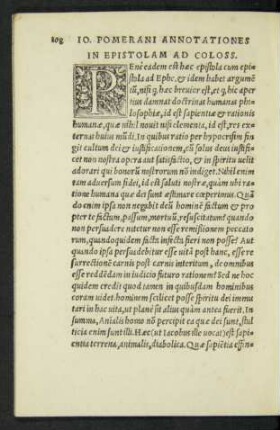 108 IO. POMERANI ANNOTATIONES
IN EPISTOLAM AD COLOSS.
PENE eadem est hæc epistola cum epi
stola ad Ephe. & idem habet argumē
tū, nisi q̄ hæc breuior est, et q̄ hic aper
tius damnat doctrinas humanas phi
losophiæ, id est sapientiæ & rationis
humanæ, quæ nihil nouit nisi elementa, id est, res ex
ternas huius mūdi. In quibus ratio per hypocrisim fin
git cultum dei & iustificationem, cū solus deus iustifi-
cet non nostra opera aut satisfactio, & in spiritu uelit
adorari qui bonorū nostrorum nō indiget. Nihil enim
tam aduersum fidei, id est saluti nostræ, quàm ubi ra
tione humana quæ dei sunt æstimare cœperimus. Quā
do enim ipsa non negabit deū hominē factum & pro
pter te factum, passum, mortuū, resuscitatum? quando
non uel aperte nitetur non esse remissionem peccato
rum, quando quidem facta infecta fieri non posse? Aut
quando ipsa persuadebitur esse uitā post hanc, esse re
surrectionē carnis post carnis interitum, de omnibus
esse reddēdam in iudicio futuro rationem? Sed ne hoc
quidem credit quod tamen in quibusdam hominibus
coram uidet. hominem scilicet posse spiritu dei immu
tari in hac uita, ut planè sit alius quàm antea fuerit. In
summa, Animalis homo nō percipit ea quæ dei sunt, stul
titia enim sunt illi. Hæc (ut Iacobus ille uocat) est sapi
entia terrena, animalis, diabolica. Quæ sapiētia effin-